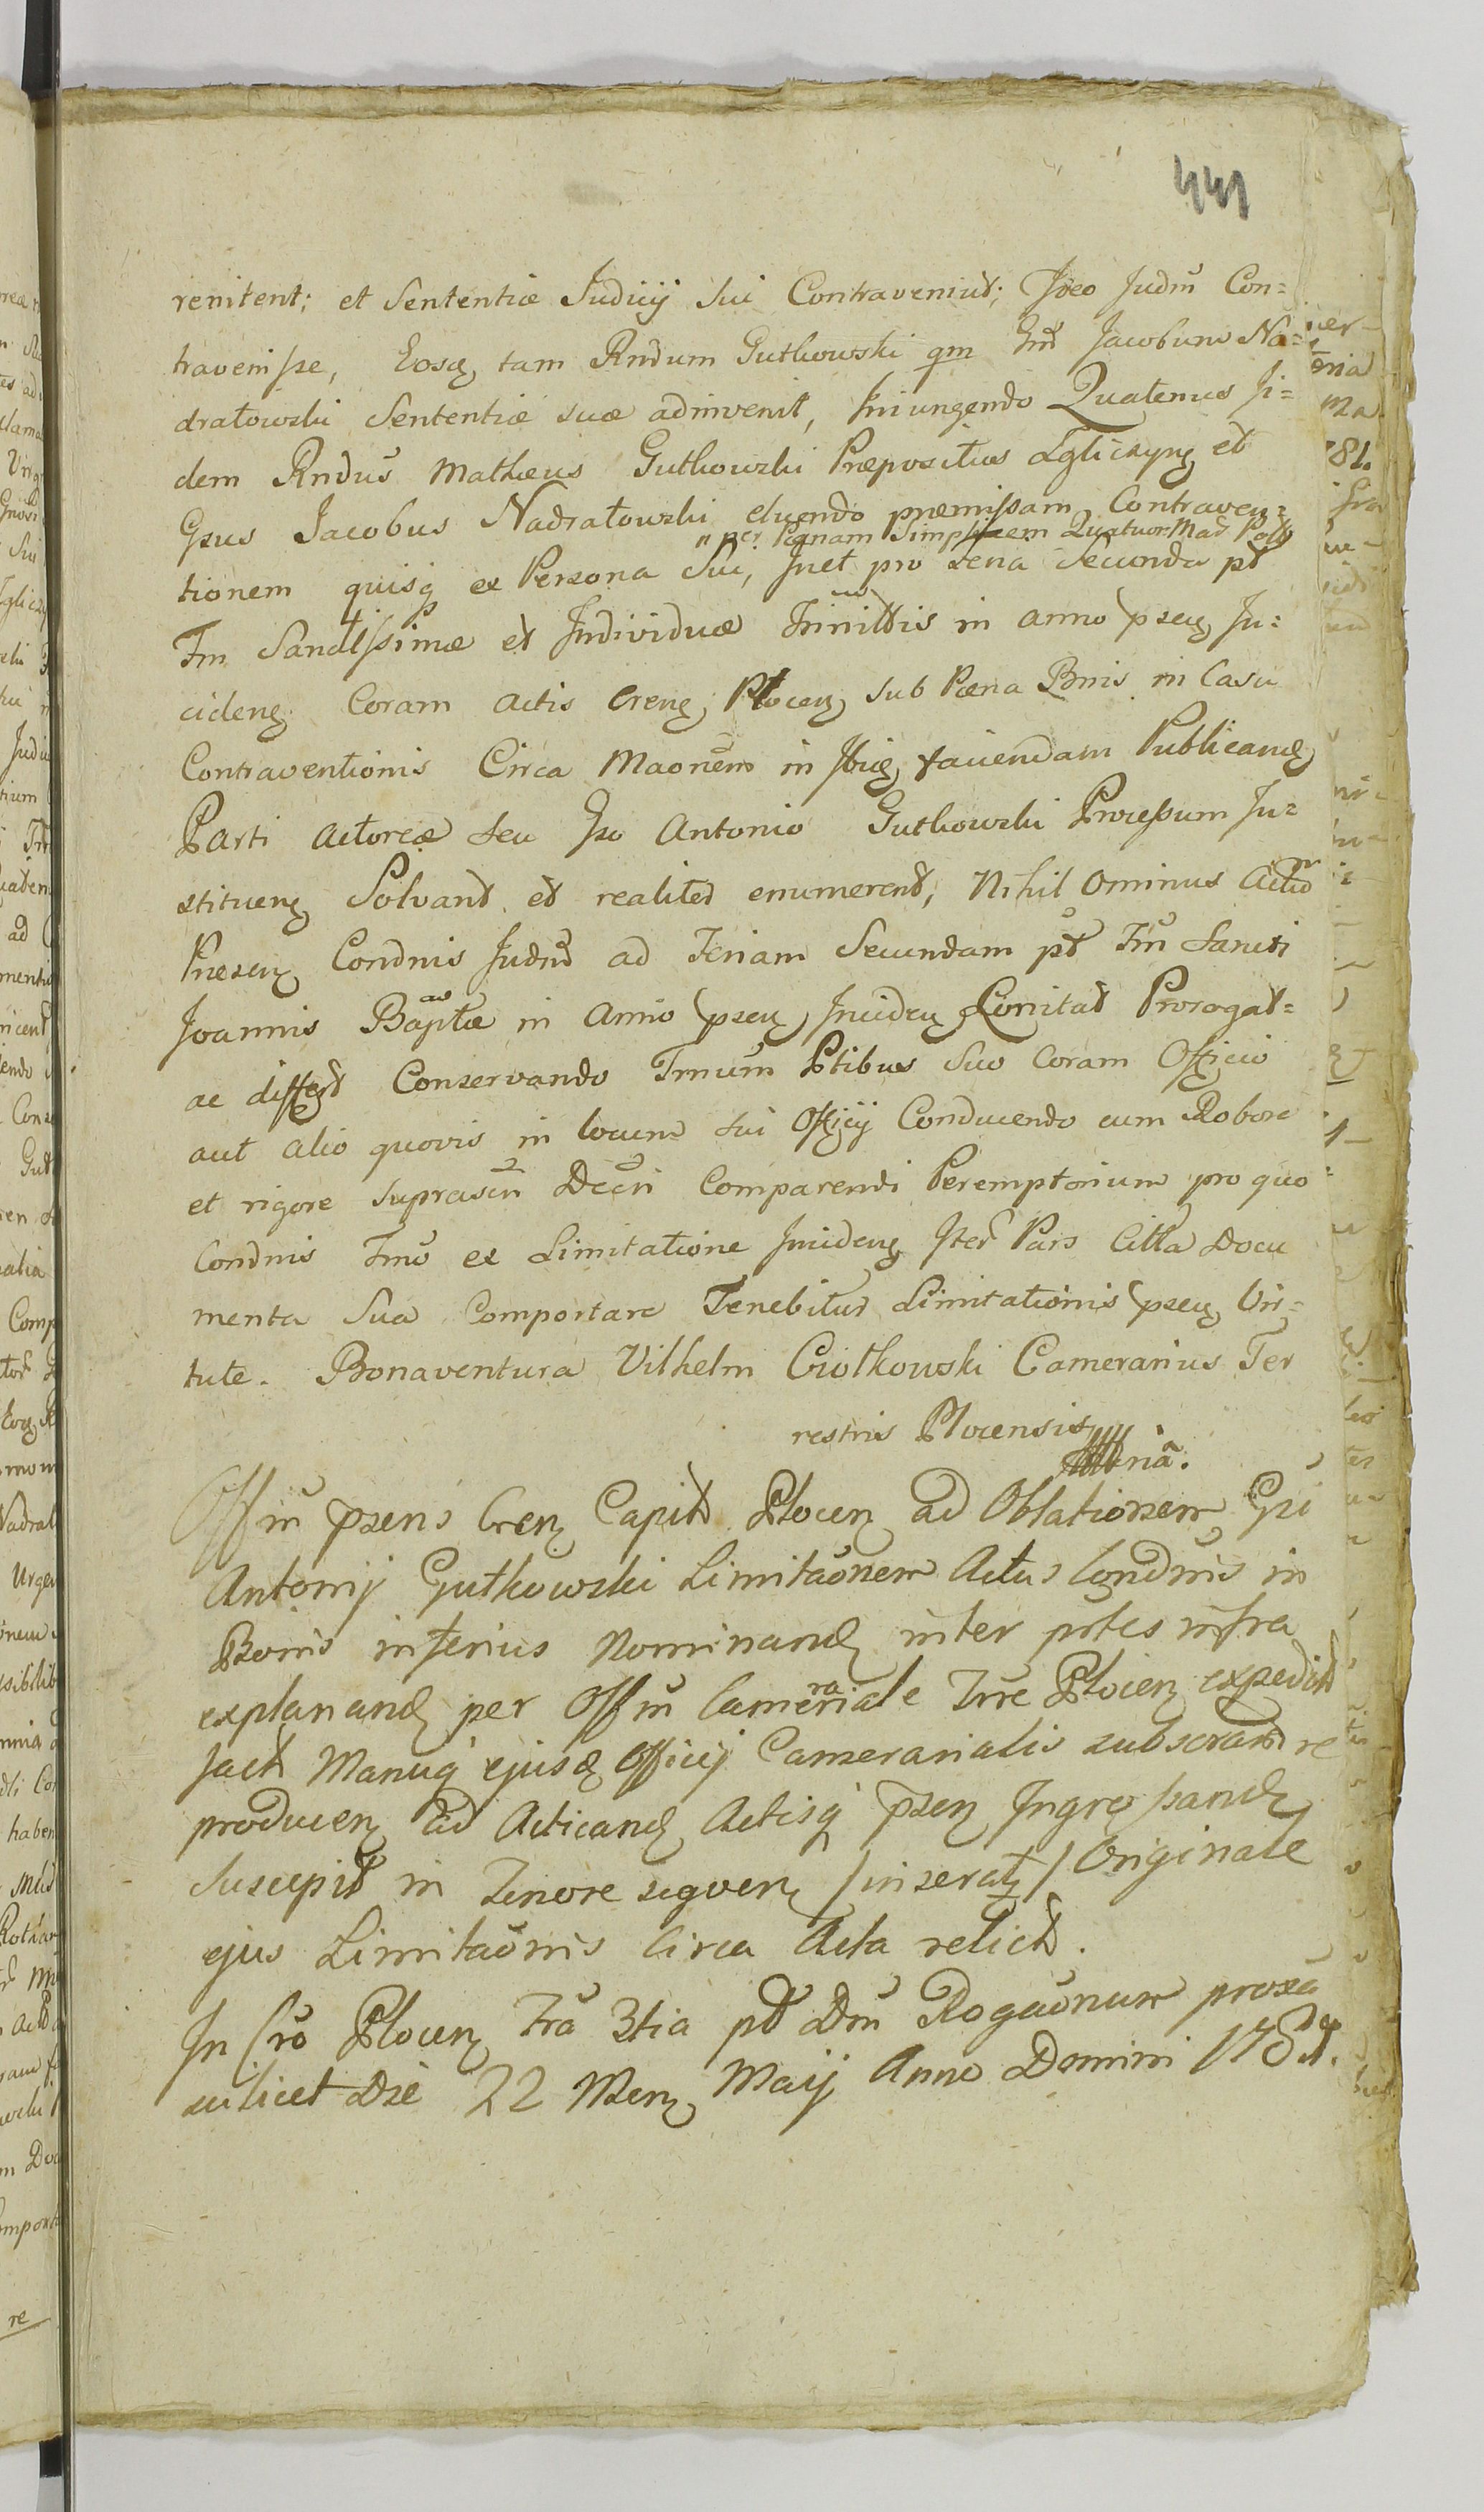 441
renitent; et Sententiæ Judicij sui Contraveniut; Ideo Judm̄ Con=
travenisse, Eosq tam Rndum Gutkowski qm Gnd Jacobum Na=
dratowski Sententiæ suæ adinvenit, Iniungendo Quatenus Ii=
dem Rndus Matheus Gutkowski Præpositus Lgliczyn et
Gsus Jacobus Nadratowski eluendo præmissam Contraven=
" per Pænam Simplicem Quatuor Mad Pol
tionem quisq ex Persona Sui, Inet pro Feria Secunda pt
Fm Sanctssimæ et Individuæ Trinittis in anno psen In=
ciden Coram Actis Cren Plocen sub Pæna Bnis in Casu
Contraventionis Circa Maonem in favendam Publicand
Parti Actoreæ seu Gso Antonio Gutkowski Processum In=
stituen Solvant et realiter enumerent, Nihil Ominus Actum
Præsen Condnis Judm ad Feriam Secundam pt Fm Sancti
Joannis Baptæ in Anno psen Inciden Conitat Prorogat=
ac differt Conservando Tmum Ptibus suo Coram Officio
aut alio quovis in locum sui Officij Conducendo cum Robore
et rigore suprascri Decri Comparendi Peremptorium pro quo
Condnis Tmo ex Limitatione Inciden Iter Pars Citta Docu
menta Sua Comportare Tenebitur Limitationis psen Vir=
tute. Bonaventura Vilhelm Ciołkowski Camerarius Ter
restris Plocensis
Offm psens Cren Capit Plocen ad Oblationem Gsi
Antonij Gutkowski Limitaonem Actus Condnis in
Bonis inferius Nominand inter ptes infra
explanand per Offm Camerariale Trre Plocen expedit
fact Manuq ejusd Officij Camerarialis subscrapt re
producen ad Acticand Actisq psen Ingrossand
Suscepit in Tenore seqven /inserat/ Originale
ejus Limitaonis Circa Acta relict.
In Cro Plocen Fra 3tia pt Dm Rogaonum proxa
scilicet Die 22 Men Maij Anno Domini 178